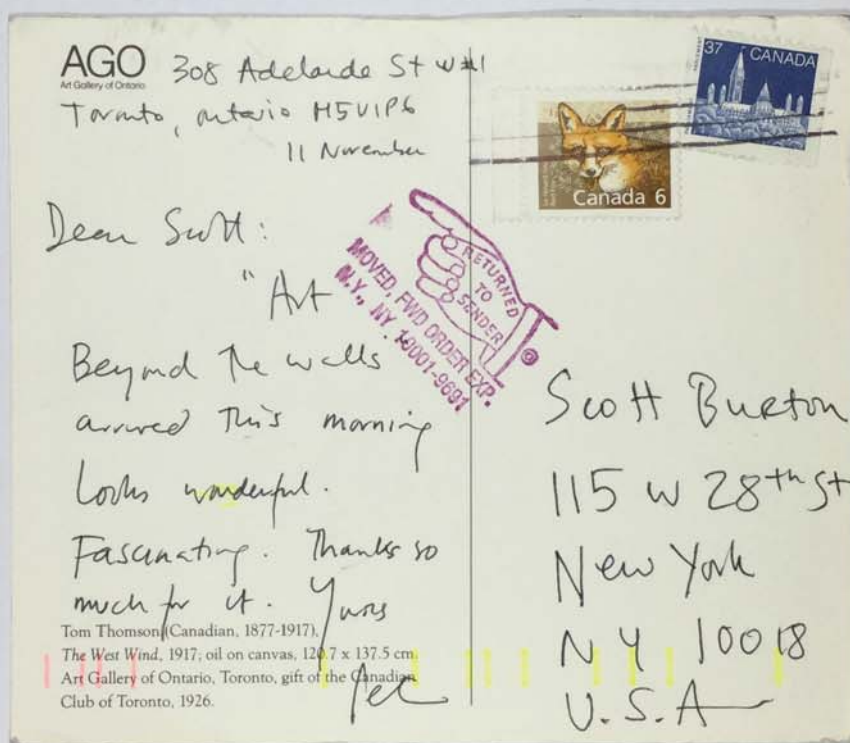 AGO 308 Adelaide St W #1
Art Gallery of Ontario
Toronto, Ontario M5V1P6
11 November
Dear Scott:
"Art
Beyond the walls"
arrived this morning
Looks wonderful.
Fascinating. Thanks so
much for it. Yours
Tom Thomson (Canadian, 1877-1917),
The West Wind, 1917; oil on canvas, 120.7 x 137.5 cm.
Art Gallery of Ontario, Toronto, gift of the Canadian
Club of Toronto, 1926.
37 CANADA
Canada 6
RETURNED
TO
SENDER
MOVED, FWD ORDER EXP.
N.Y., NY 10001-9691
Scott Burton
115 W 28th St
New York
NY 10018
U.S.A